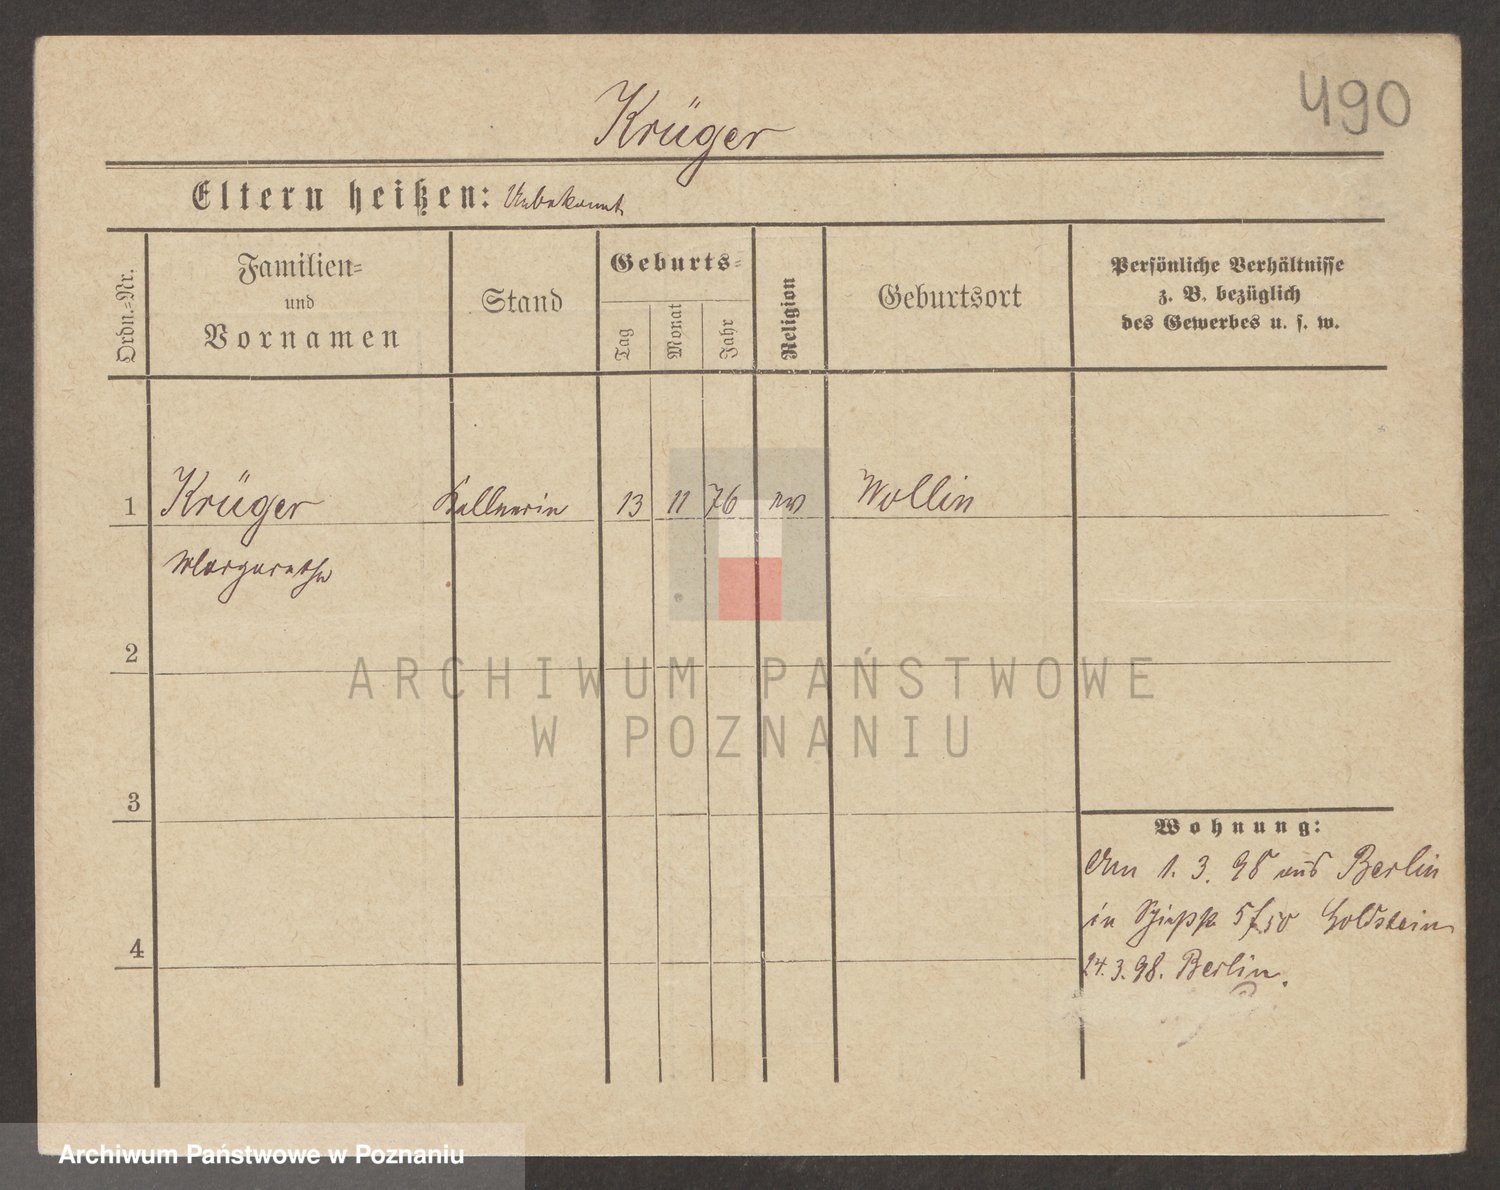 490
Krüger
Eltern heißen: Unbekannt
Ordn.=Nr.
Familien=
und
Vornamen
Stand
Geburts=
Tag
Monat
Jahr
Religion
Geburtsort
Persönliche Verhältnisse
z. B. bezüglich
des Gewerbes u. s. w.
1 Krüger Kellnerin 13 11 76 ev Wollin
Margarethe
2
3
4
Wohnung:
Am 1. 3. 98 aus Berlin
in Goldstein
24. 3. 98. Berlin.
ARCHIWUM PAŃSTWOWE
W POZNANIU
Archiwum Państwowe w Poznaniu